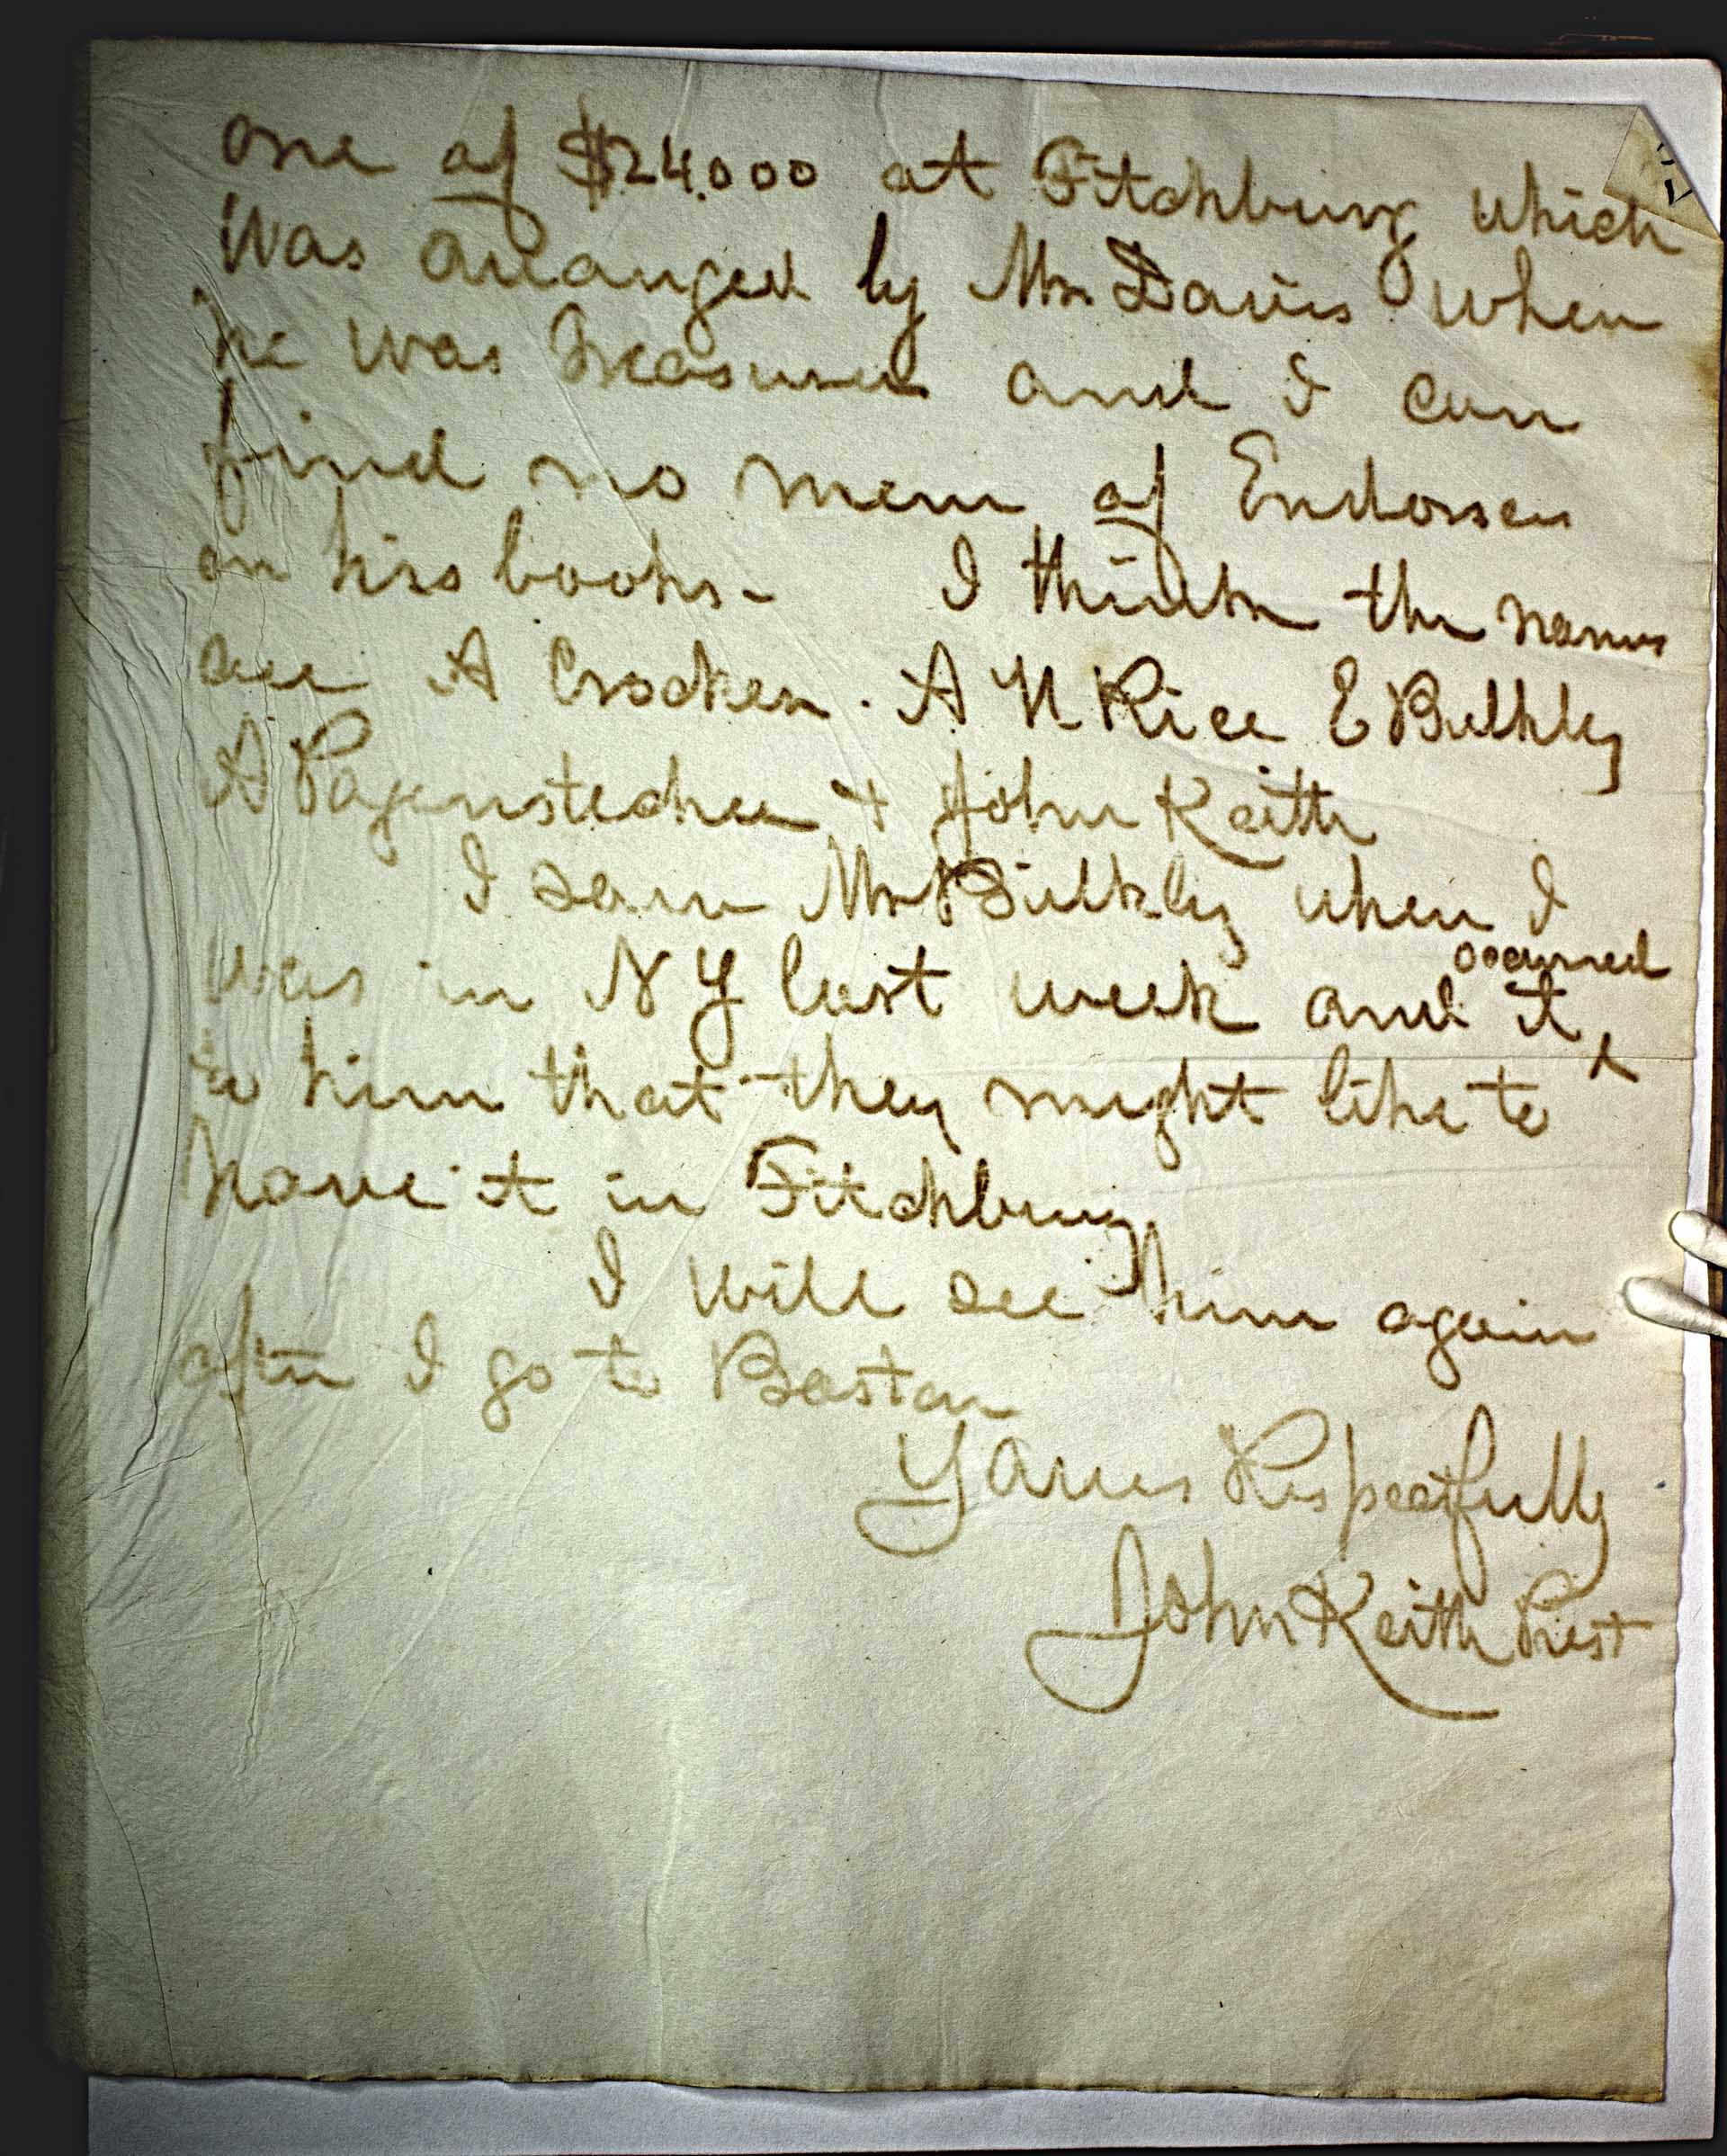 one of $24.000 at Fitchburg which
was arranged by Mr. Davis when
he was Treasurer and I can
find no mem of Endorser
on his books - I think the names
are A Crocker. A N Rice E Bulkley
A Pagenstecher + John Keith
I saw Mr Bulkley when I
was in NY last week and it occurred
to him that they might like to
have it in Fitchburg
I will see him again
after I go to Boston
Yours Respectfully
John Keith Prest